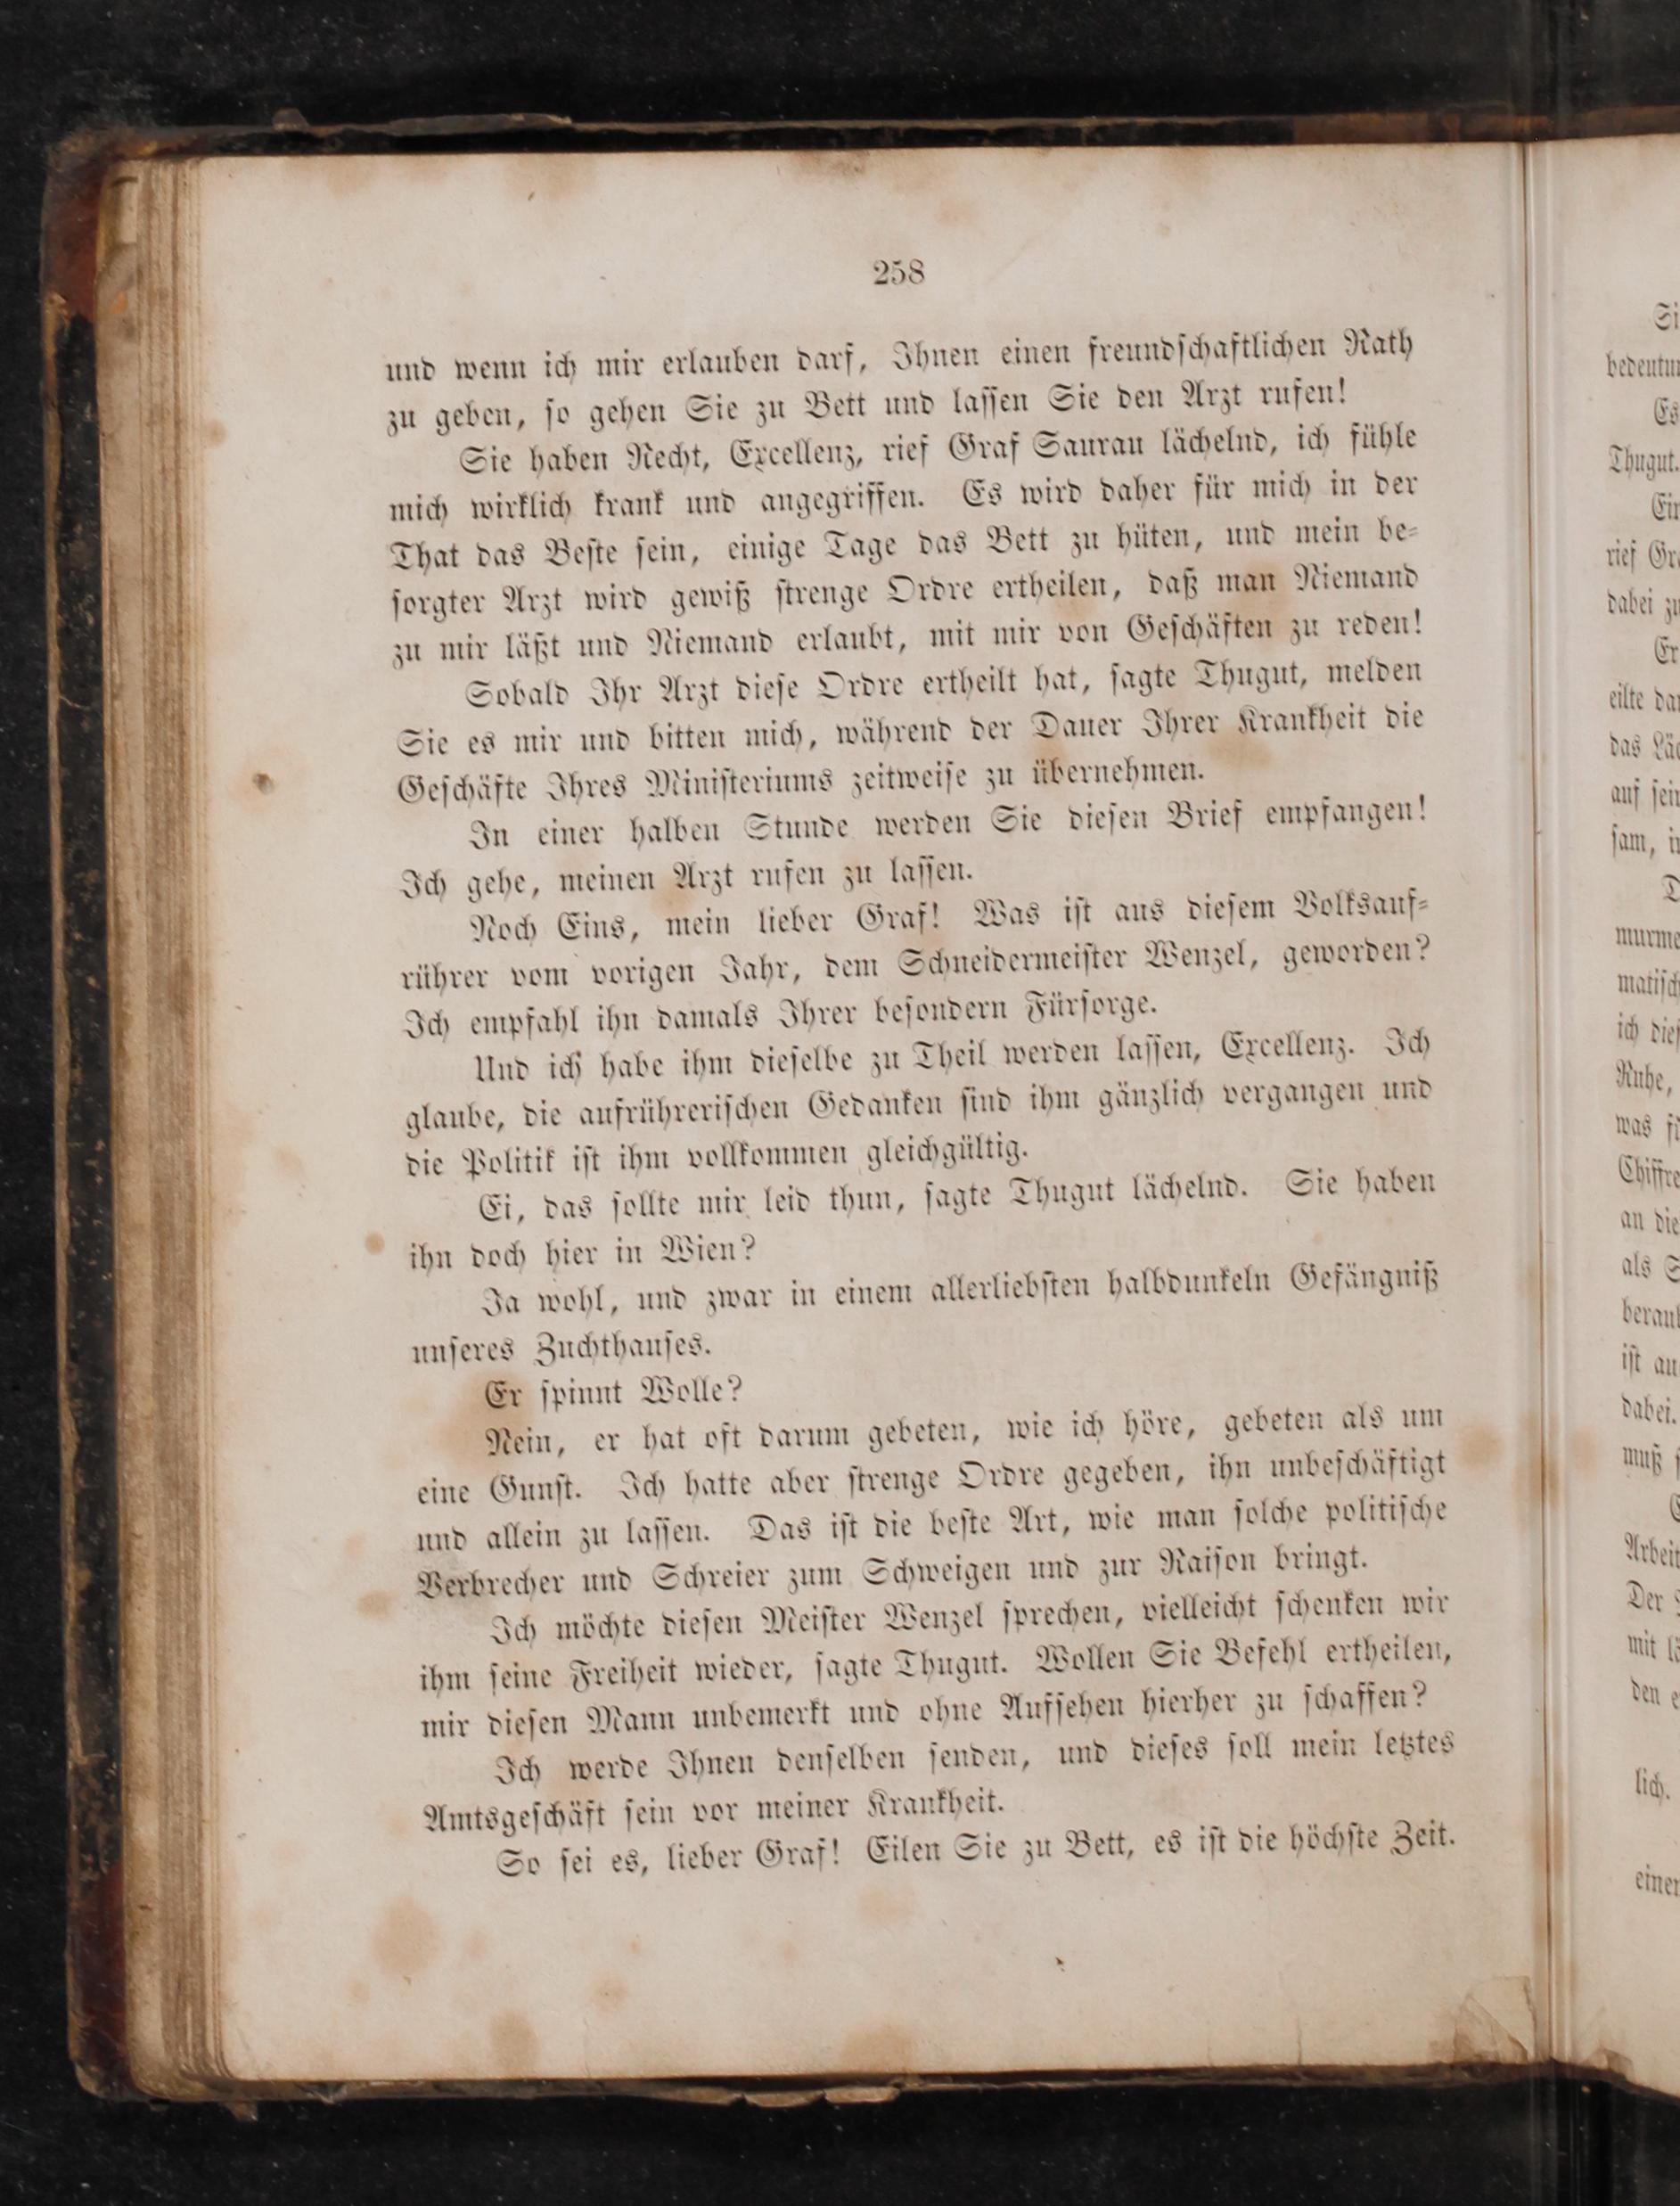 258
und wenn ich mir erlauben darf, Ihnen einen freundschaftlichen Rath
zu geben, so gehen Sie zu Bett und lassen Sie den Arzt rufen!
Sie haben Recht, Excellenz, rief Graf Saurau lächelnd, ich fühle
mich wirklich krank und angegriffen. Es wird daher für mich in der
That das Beste sein, einige Tage das Bett zu hüten, und mein be-
sorgter Arzt wird gewiß strenge Ordre ertheilen, daß man Niemand
zu mir läßt und Niemand erlaubt, mit mir von Geschäften zu reden!
Sobald Ihr Arzt diese Ordre ertheilt hat, sagte Thugut, melden
Sie es mir und bitten mich, während der Dauer Ihrer Krankheit die
Geschäfte Ihres Ministeriums zeitweise zu übernehmen.
In einer halben Stunde werden Sie diesen Brief empfangen!
Ich gehe, meinen Arzt rufen zu lassen.
Noch Eins, mein lieber Graf! Was ist aus diesem Volksauf-
rührer vom vorigen Jahr, dem Schneidermeister Wenzel, geworden?
Ich empfahl ihn damals Ihrer besondern Fürsorge.
Und ich habe ihm dieselbe zu Theil werden lassen, Excellenz. Ich
glaube, die aufrührerischen Gedanken sind ihm gänzlich vergangen und
die Politik ist ihm vollkommen gleichgültig.
Ei, das sollte mir leid thun, sagte Thugut lächelnd. Sie haben
ihn doch hier in Wien?
Ja wohl, und zwar in einem allerliebsten halbdunkeln Gefängniß
unseres Zuchthauses.
Er spinnt Wolle?
Nein, er hat oft darum gebeten, wie ich höre, gebeten als um
eine Gunst. Ich hatte aber strenge Ordre gegeben, ihn unbeschäftigt
und allein zu lassen. Das ist die beste Art, wie man solche politische
Verbrecher und Schreier zum Schweigen und zur Raison bringt.
Ich möchte diesen Meister Wenzel sprechen, vielleicht schenken wir
ihm seine Freiheit wieder, sagte Thugut. Wollen Sie Befehl ertheilen,
mir diesen Mann unbemerkt und ohne Aufsehen hierher zu schaffen?
Ich werde Ihnen denselben senden, und dieses soll mein letztes
Amtsgeschäft sein vor meiner Krankheit.
So sei es, lieber Graf! Eilen Sie zu Bett, es ist die höchste Zeit.
Es
Thugut.
rief
dabei
Er
eilte
das
auf
sam,
ich
Ruhe,
was
an die
als
ist
dabei.
muß
Der
mit
den
lich.